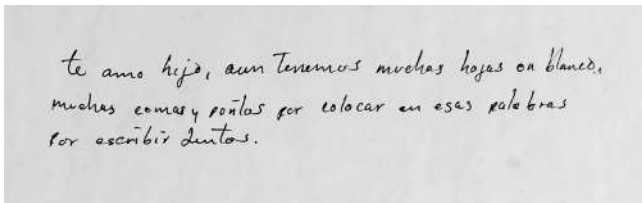 te amo hijo, aun Tenemos muchas hojas en blanco,
muchas comas y pontos por colocar en esas palabras
por escribir Juntos.